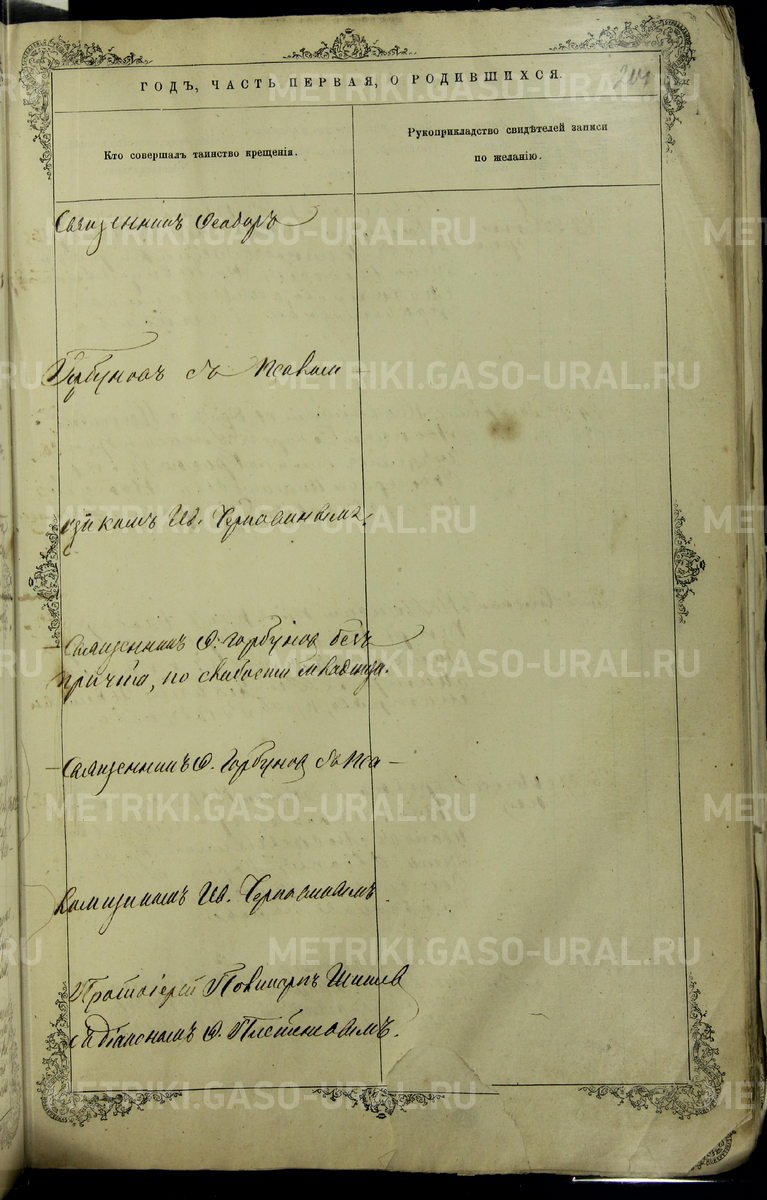 ГОДЪ, ЧАСТЬ ПЕРВАЯ, О РОДИВШИХСЯ.
204
Кто совершалъ таинство крещенія.
Рукоприкладство свидѣтелей записи
по желанію.
Священникъ Ѳеодоръ
Горбуновъ съ Псалом-
щикомъ Ив. Черпа
Священникъ Ѳ. Горбуновъ безъ
причта, по слабости младенца.
Священникъ Ѳ. Горбуновъ съ Пса-
ломщикомъ Ив.
Протоіерей Поликарпъ Шишев
съ діакономъ Ѳ. Плетеневымъ.
METRIKI.GASO-URAL.RU